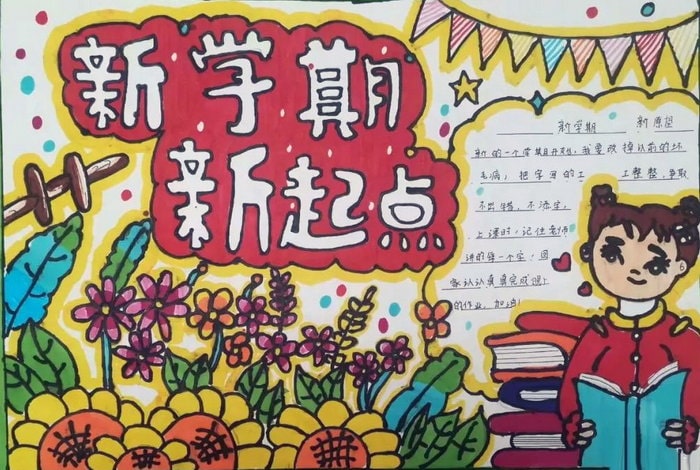 新学期
新起点
新学期 新愿望
新的一个学期开始,我要改掉以前的坏
毛病,把字写的工工整整,争取
不写错,不漂字,
上课时,记住老师
讲的每一个字,回
家认认真真完成课上
的作业,加油!